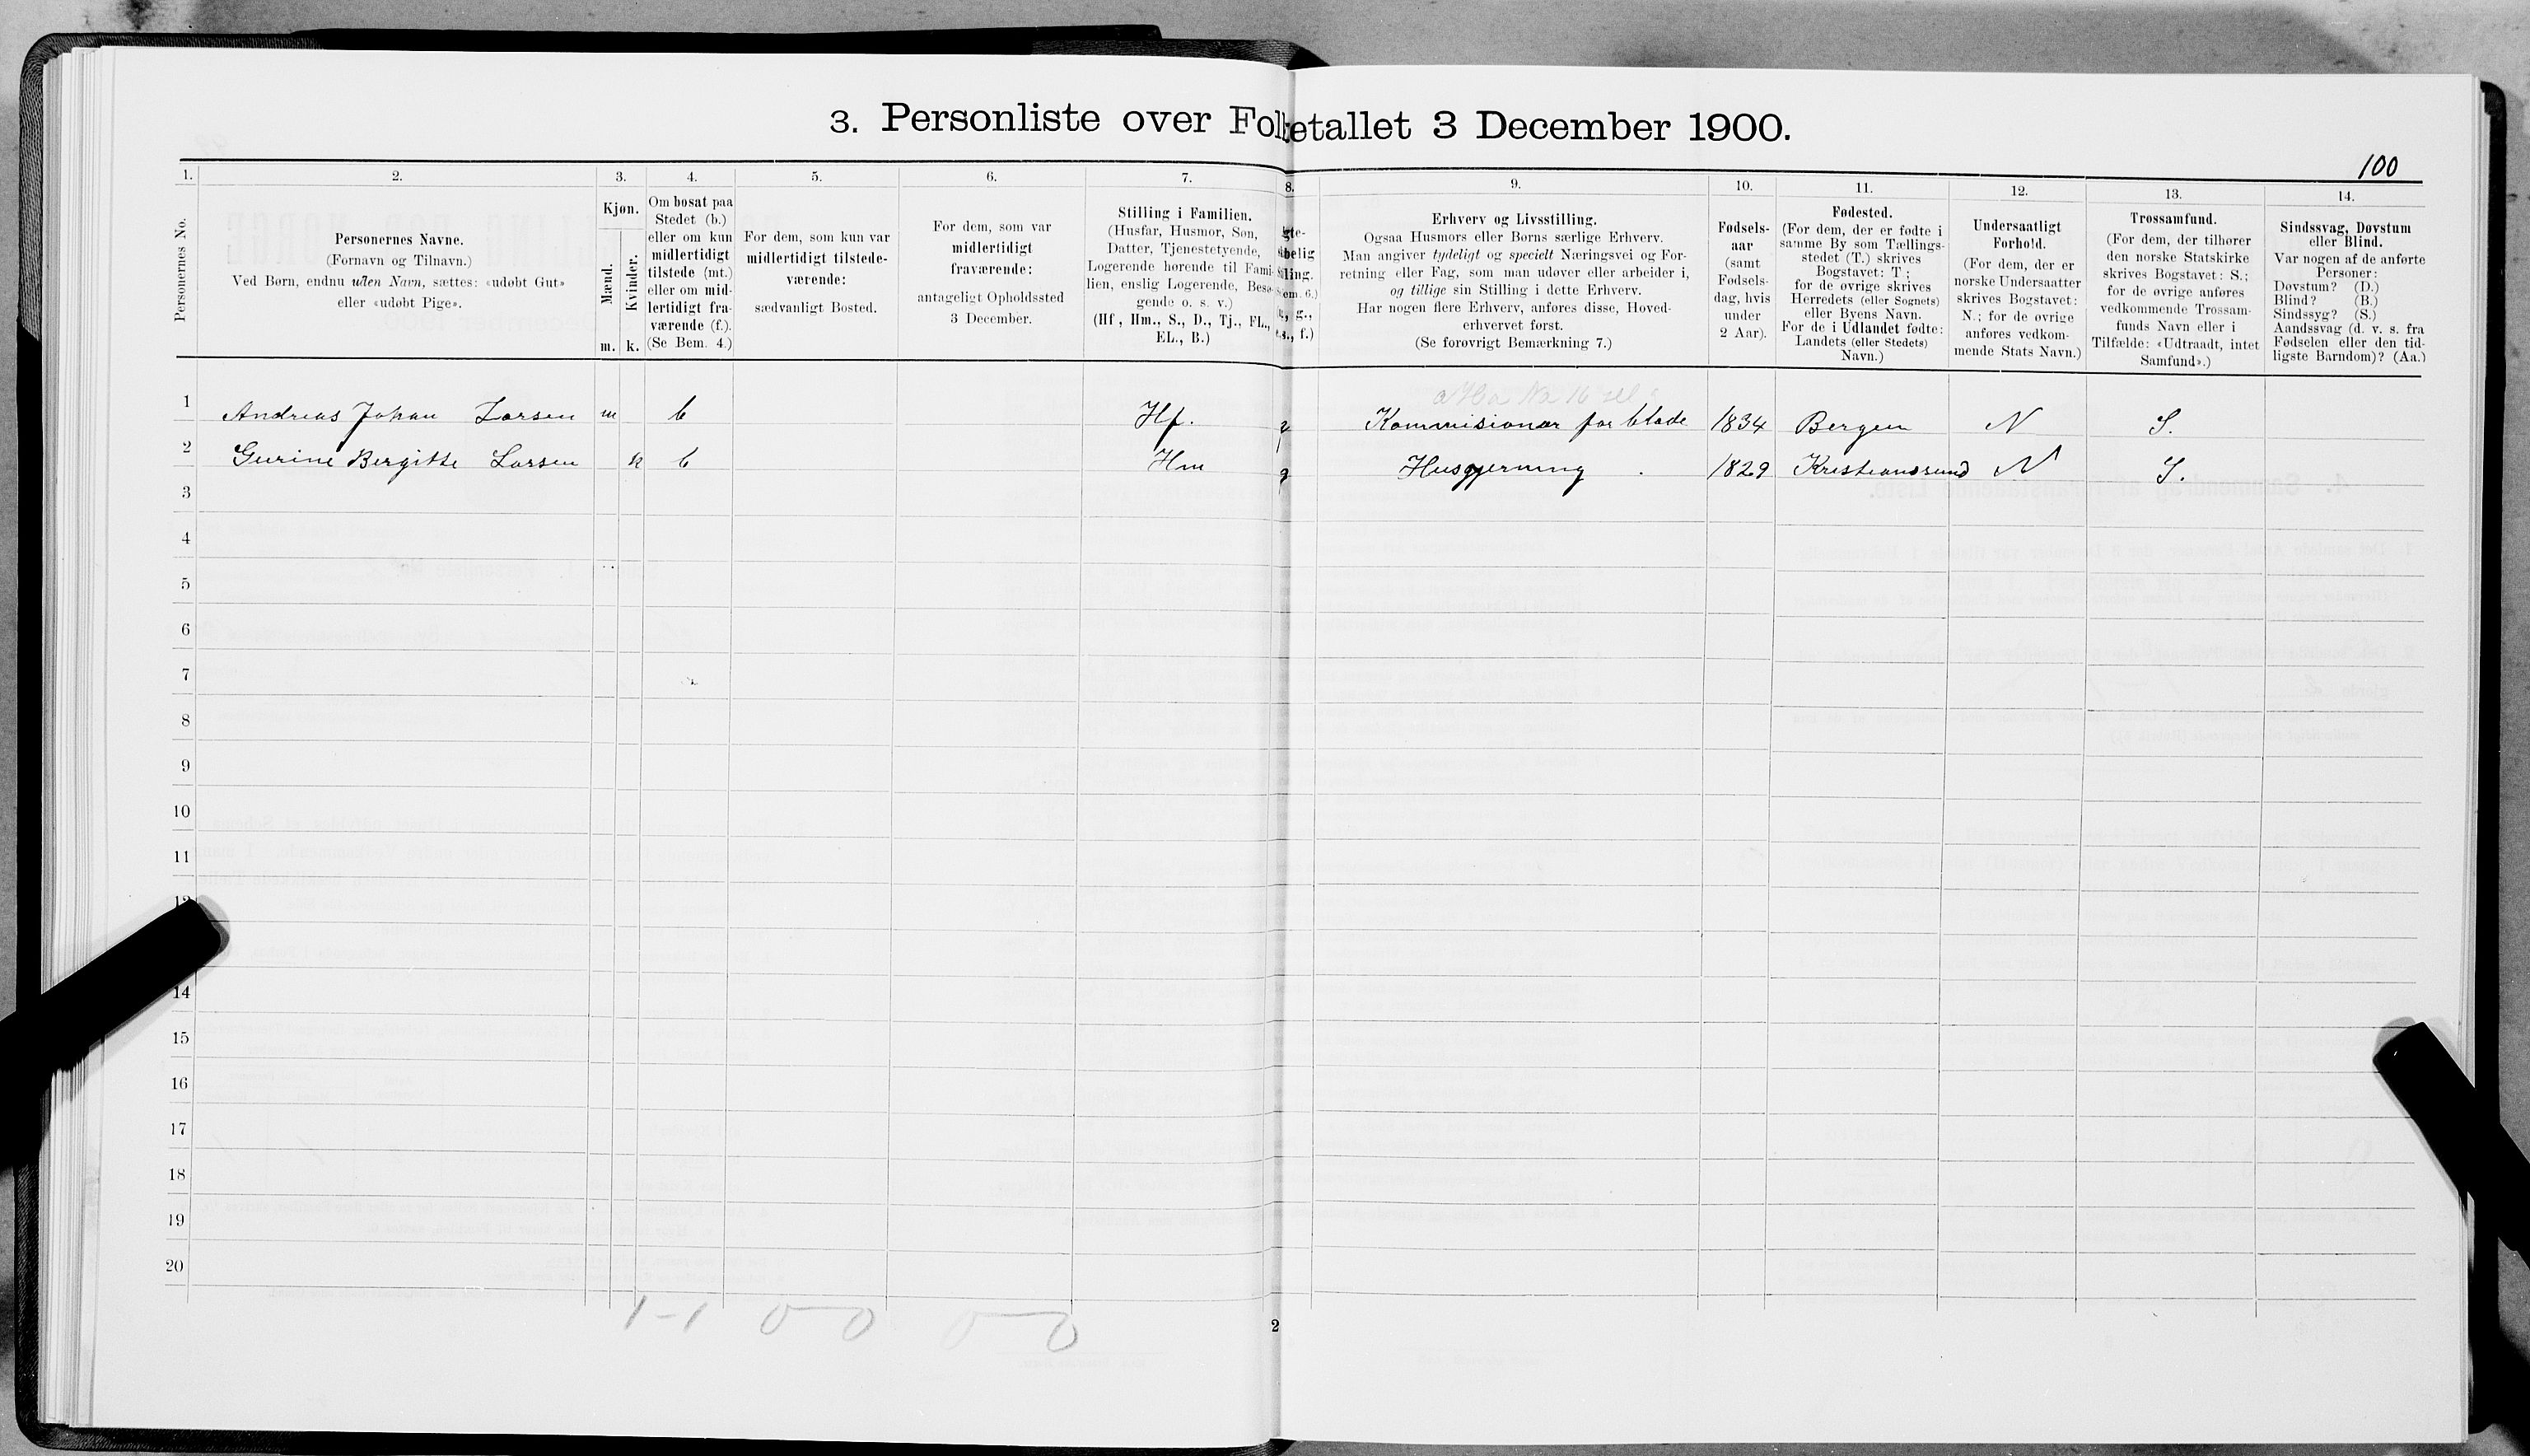 3. Personliste over Folketallet 3 December 1900.
100
1. 2. 3. 4. 5. 6. 7. 8. 9. 10. 11. 12. 13. 14.
Personernes No.
Personernes Navne.
(Fornavn og Tilnavn.)
Ved Børn, endnu uden Navn, sættes: «udøbt Gut»
eller «udøbt Pige».
Kjøn.
Mænd.
Kvinder.
m. k.
Om bosat paa
Stedet (b.)
eller om kun
midlertidigt
tilstede (mt.)
eller om mid-
lertidigt fra-
værende (f.).
(Se Bem. 4.)
For dem, som kun var
midlertidigt tilstede-
værende:
sædvanligt Bosted.
For dem, som var
midlertidigt
fraværende:
antageligt Opholdssted
3 December.
Stilling i Familien.
(Husfar, Husmor, Søn,
Datter, Tjenestetyende,
Logerende hørende til Fami-
lien, enslig Logerende, Besø-
gende o. s. v.)
(Hf., Hm., S., D., Tj., FL.,
EL., B.)
gte-
belig
ling.
em. 6.)
g.,
s., f.)
Erhverv og Livsstilling.
Ogsaa Husmors eller Børns særlige Erhverv.
Man angiver tydeligt og specielt Næringsvei og For-
retning eller Fag, som man udøver eller arbeider i,
og tillige sin Stilling i dette Erhverv.
Har nogen flere Erhverv, anføres disse, Hoved-
erhvervet først.
(Se forøvrigt Bemærkning 7.)
Fødsels-
aar
(samt
Fødsels-
dag, hvis
under
2 Aar).
Fødested.
(For dem, der er fødte i
samme By som Tællings-
stedet (T.) skrives
Bogstavet: T;
for de øvrige skrives
Herredets (eller Sognets)
eller Byens Navn.
For de i Udlandet fødte:
Landets (eller Stedets)
Navn.)
Undersaatligt
Forhold.
(For dem, der er
norske Undersaatter
skrives Bogstavet:
N.; for de øvrige
anføres vedkom-
mende Stats Navn.)
Trossamfund.
(For dem, der tilhører
den norske Statskirke
skrives Bogstavet: S.;
for de øvrige anføres
vedkommende Trossam-
funds Navn eller i
Tilfælde: «Udtraadt, intet
Samfund».)
Sindssvag, Døvstum
eller Blind.
Var nogen af de anførte
Personer:
Døvstum? (D.)
Blind? (B.)
Sindssyg? (S.)
Aandssvag (d. v. s. fra
Fødselen eller den tid-
ligste Barndom)? (Aa.)
1 Andreas Johan Larsen m b Hf. g Kommisionær for blade 1834 Bergen N S.
2 Gurine Bergitte Larsen k b Hm g Husgjerning 1829 Kristiansund N S.
3
4
5
6
7
8
9
10
11
12
14
15
16
17
18
19
20
1-1 0-0 0-0
2